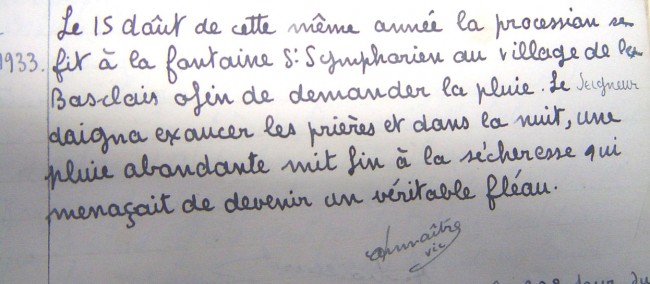 Le 15 août de cette même année la procession se
1933. fit à la fontaine St Symphorien au village de
Basclais afin de demander la pluie. Le Seigneur
daigna exaucer les prières et dans la nuit, une
pluie abondante mit fin à la sécheresse qui
menaçait de devenir un véritable fléau.
vic